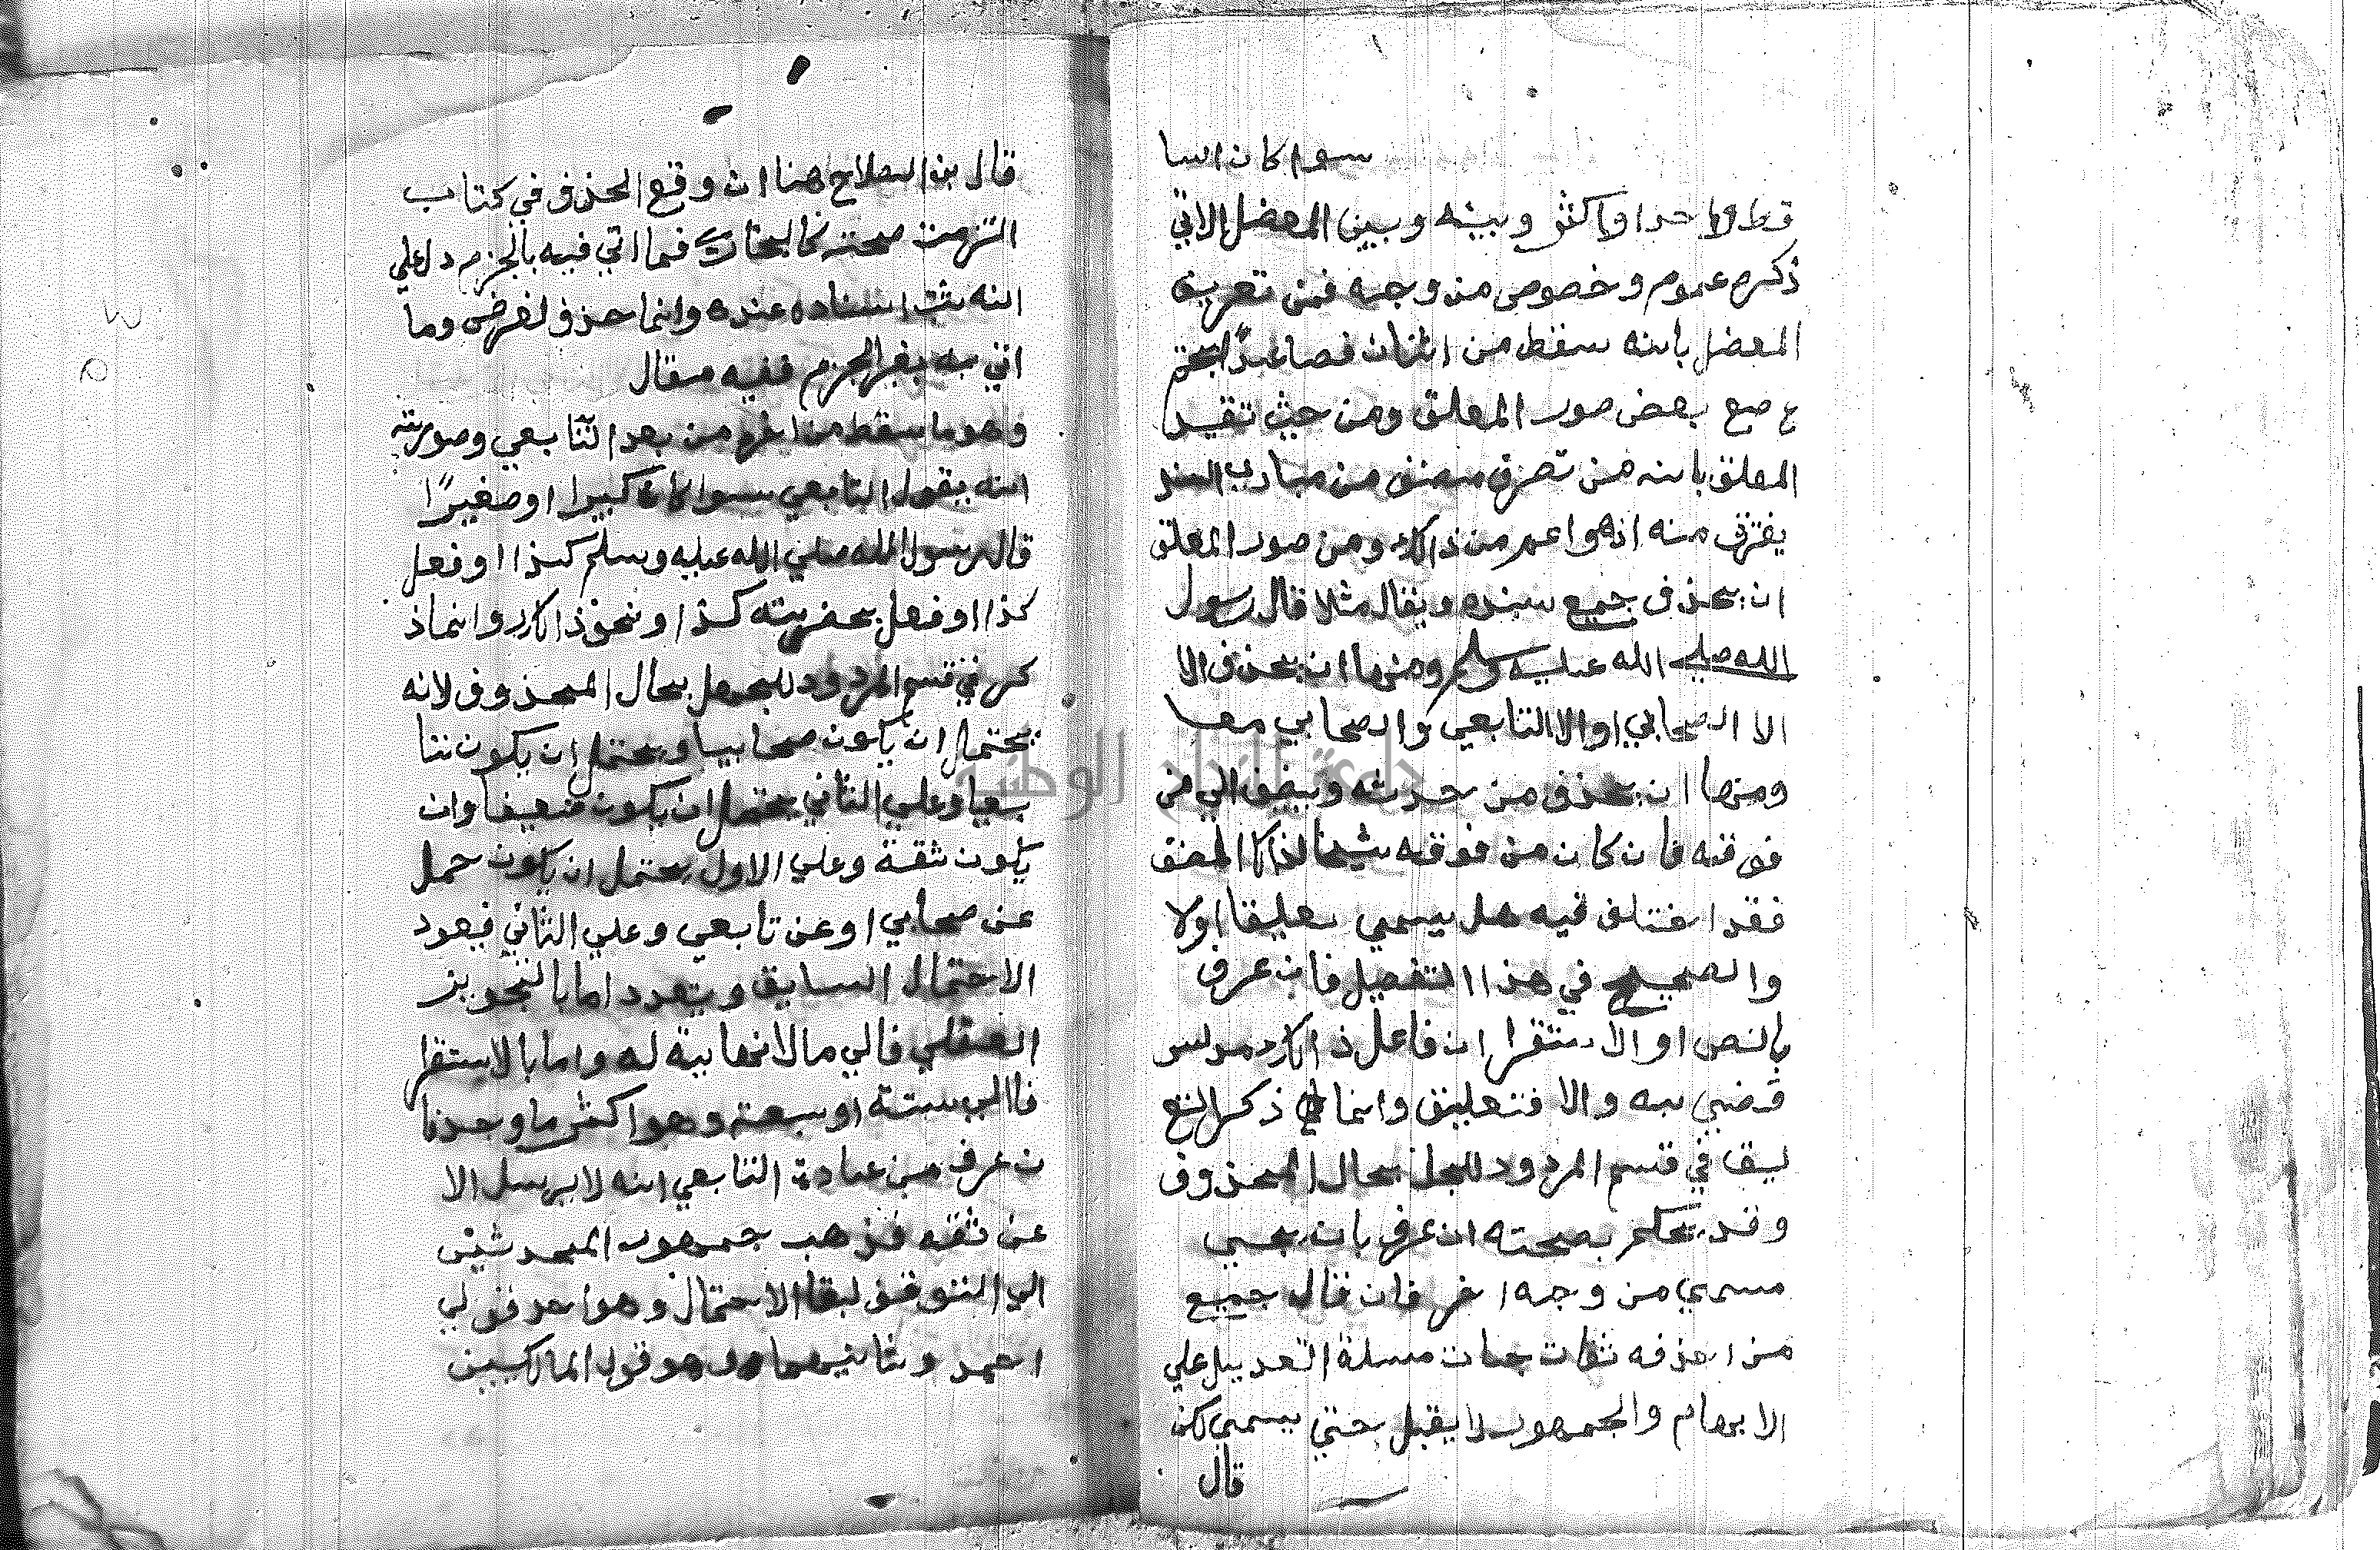 سوا كان السا
قط واحدا واكثر وبينه وبين المعضل الاتي
ذكره عموم وخصوص من وجه فمن تعريف
المعضل بانه سقط من اثنان فصاعدًا يجتم
ع مع بعض صور المعلق ومن حيث تقيد
المعلق بانه من تصرف مصنف من مبادي السند
يفترق منه اذ هو اعم من ذالك ومن صور المعلق
ان يحذف جميع سنده ويقال مثلا قال رسول
الله صلي الله عليه وسلم ومنها ان يحذف الا
الا الصحابي او الا التابعي والصحابي معا
ومنها ان يحذف من حدثه ويضيف الي من
فوقه فان كان من فوقه شيخا لذالك المصنف
فقد اختلف فيه هل يسمي تعليقا اولا
والصحيح في هذا التفصيل فان عرف
بالنص او الاستقرا ان فاعل ذالك مدلس
قضي به والا فتعليق وانما ذكر التع
ليق في قسم المردود للجهل بحال المحذوف
وقد يحكم بصحته ان عرف بان يجي
مسمي من وجه اخر فان قال جميع
من احذفه ثقات جات مسلة التعديل علي
الابهام والجمهور لا يقبل حتي يسمي لكن
قال
قال بن الصلاح هنا ان وقع الحذف في كتاب
التزمت صحته كالبخاري فما اتي فيه بالجزم دل علي
انه ثبت اسناده عنده وانما حذف لغرض وما
اتي به بغير الجزم ففيه مقال
وهو ما سقط من اخره من بعد التابعي وصورته
انه يقول التابعي سوا كان كبيرا او صغيرًا
قال رسول الله صلي الله عليه وسلم كذا او فعل
كذا او فعل بحضرته كذا ونحو ذالك وانما ذ
كر في قسم المردود للجهل بحال المحذوف لانه
يحتمل ان يكون صحابيا ويحتمل ان يكون تا
بعيا وعلي الثاني يحتمل ان يكون ضعيفا وان
يكون ثقة وعلي الاول يحتمل ان يكون حمل
عن صحابي او عن تابعي وعلي الثاني فيعود
الاحتمال السابق ويتعدد اما بالتجويز
العقلي فالي مالا نهاية له واما بالاستقرا
فالي ستة او سبعة وهو اكثر ما وجد فا
ن عرف من عادة التابعي انه لا يرسل الا
عن ثقه فذهب جمهور المحدثين
الي التوقف لبقا الاحتمال وهو احد قولي
احمد وثانيهما وهو قول المالكيين